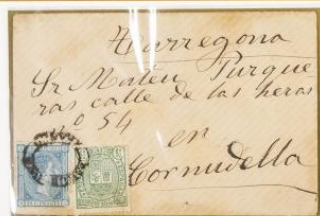 Tarregona
Sr Mateu Purque
ras calle de las heras
º 54
en
Cornudella